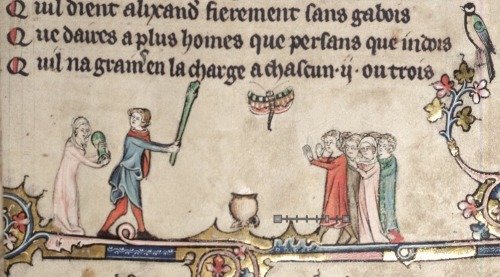 Quil dient alixand fierement sans gabois
Que daires a plus homes que persans que indois
Quil na en la charge a chascun · ij · ou trois